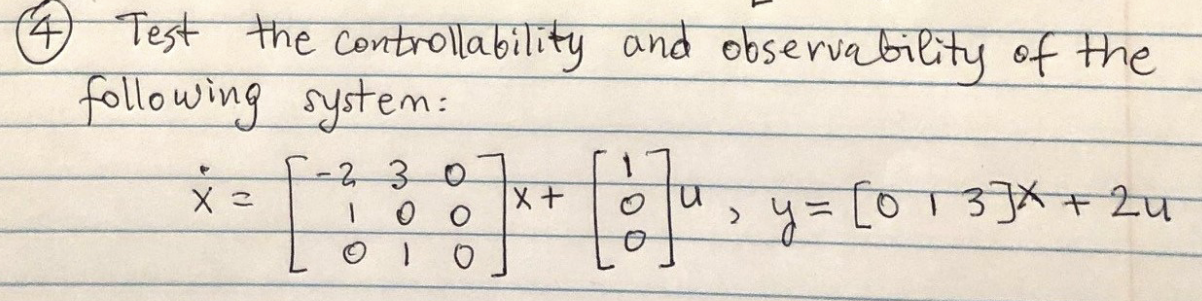 ④ Test the controllability and observability of the
following system:
ẋ = [-2 3 0; 1 0 0; 0 1 0] x + [1; 0; 0] u, y = [0 1 3]x + 2u